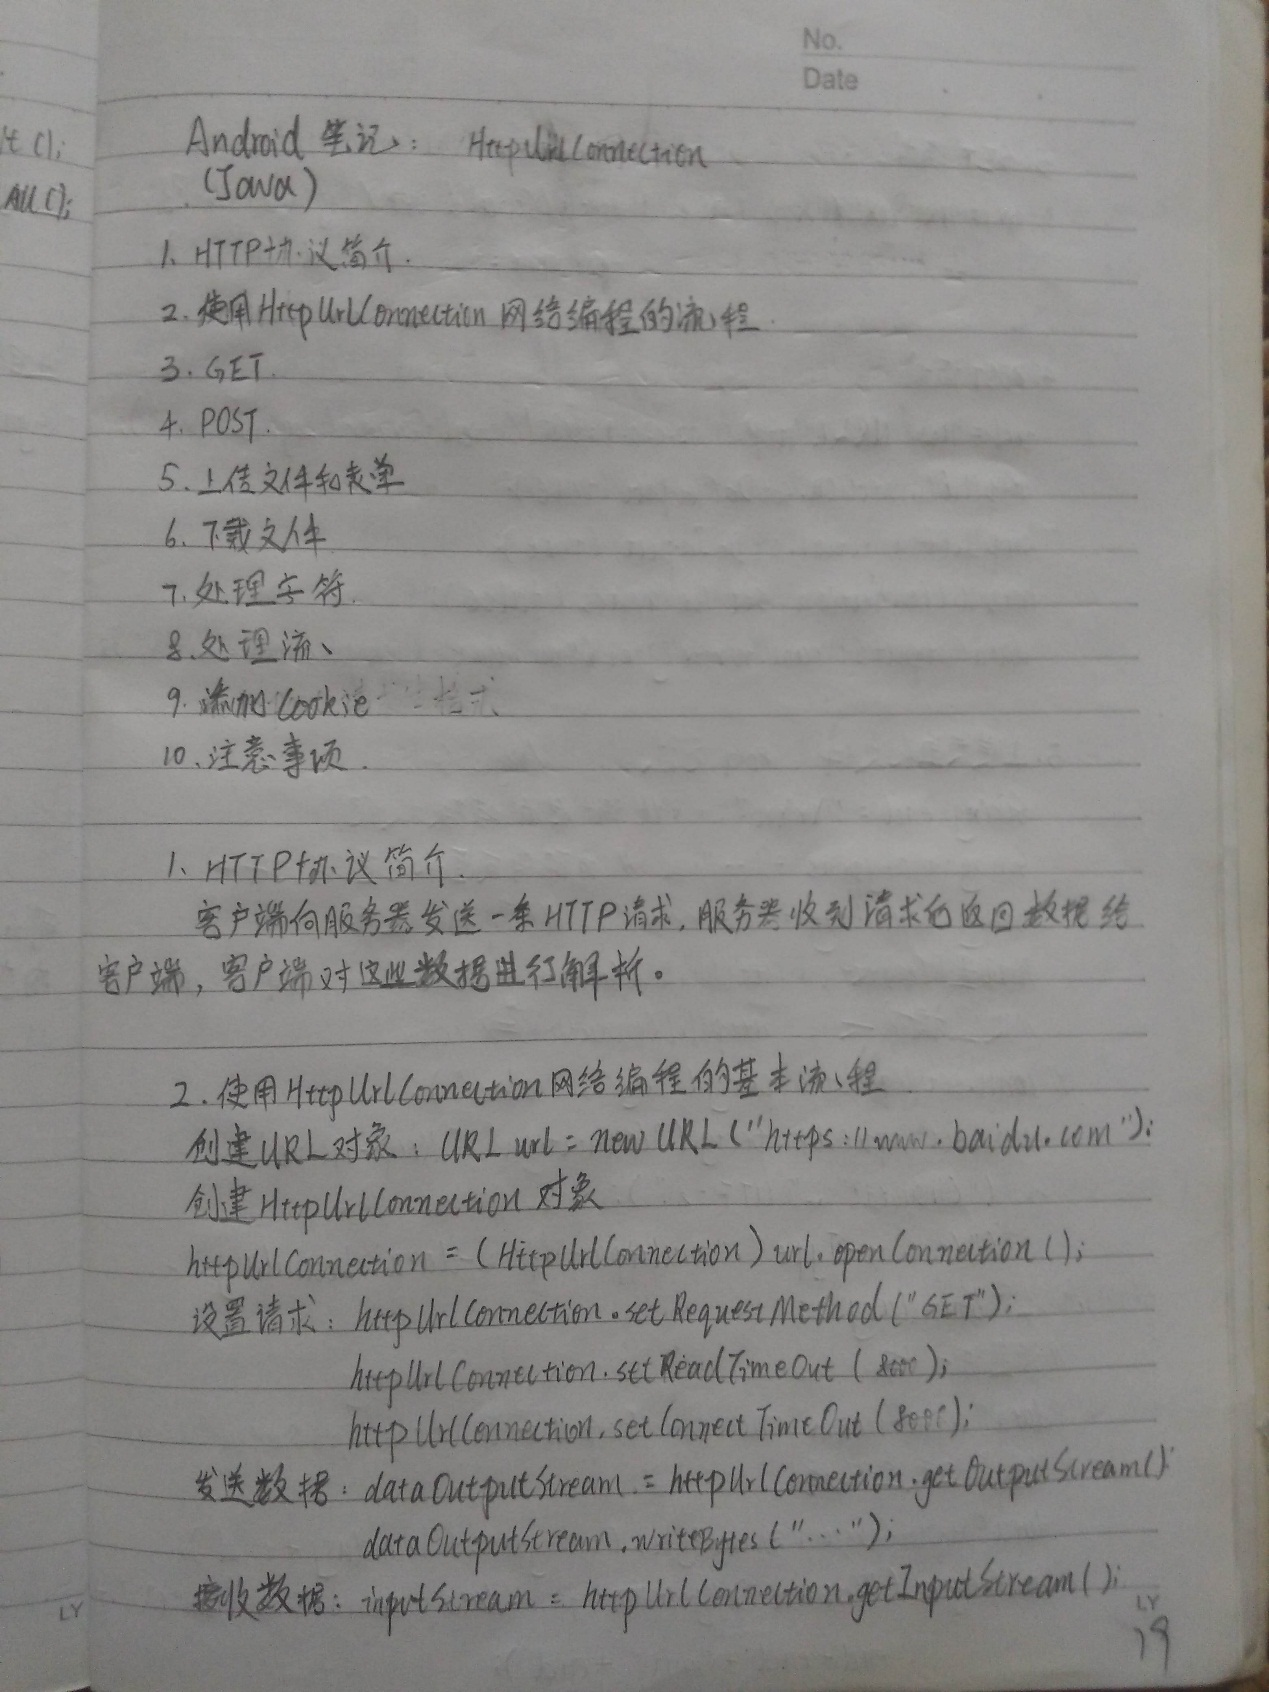 No.
Date
t();
All();
Android 笔记: HttpUrlConnection
(Java)
1、HTTP协议简介.
2.使用HttpUrlConnection网络编程的流程.
3. GET.
4. POST.
5.上传文件和表单
6.下载文件
7.处理字符.
8.处理流、
9.添加Cookie
10、注意事项.
1、HTTP协议简介.
客户端向服务器发送一条HTTP请求,服务器收到请求后返回数据给
客户端,客户端对这些数据进行解析。
2.使用HttpUrlConnection网络编程的基本流程
创建URL对象:URL url = new URL("https://www.baidu.com");
创建HttpUrlConnection对象
httpUrlConnection = (HttpUrlConnection) url.openConnection();
设置请求: httpUrlConnection.setRequestMethod("GET");
httpUrlConnection.setReadTimeOut(8000);
httpUrlConnection.setConnectTimeOut(8000);
发送数据: dataOutputStream = httpUrlConnection.getOutputStream();
dataOutputStream.writeBytes("...");
接收数据: inputStream = httpUrlConnection.getInputStream();
LY
LY
19